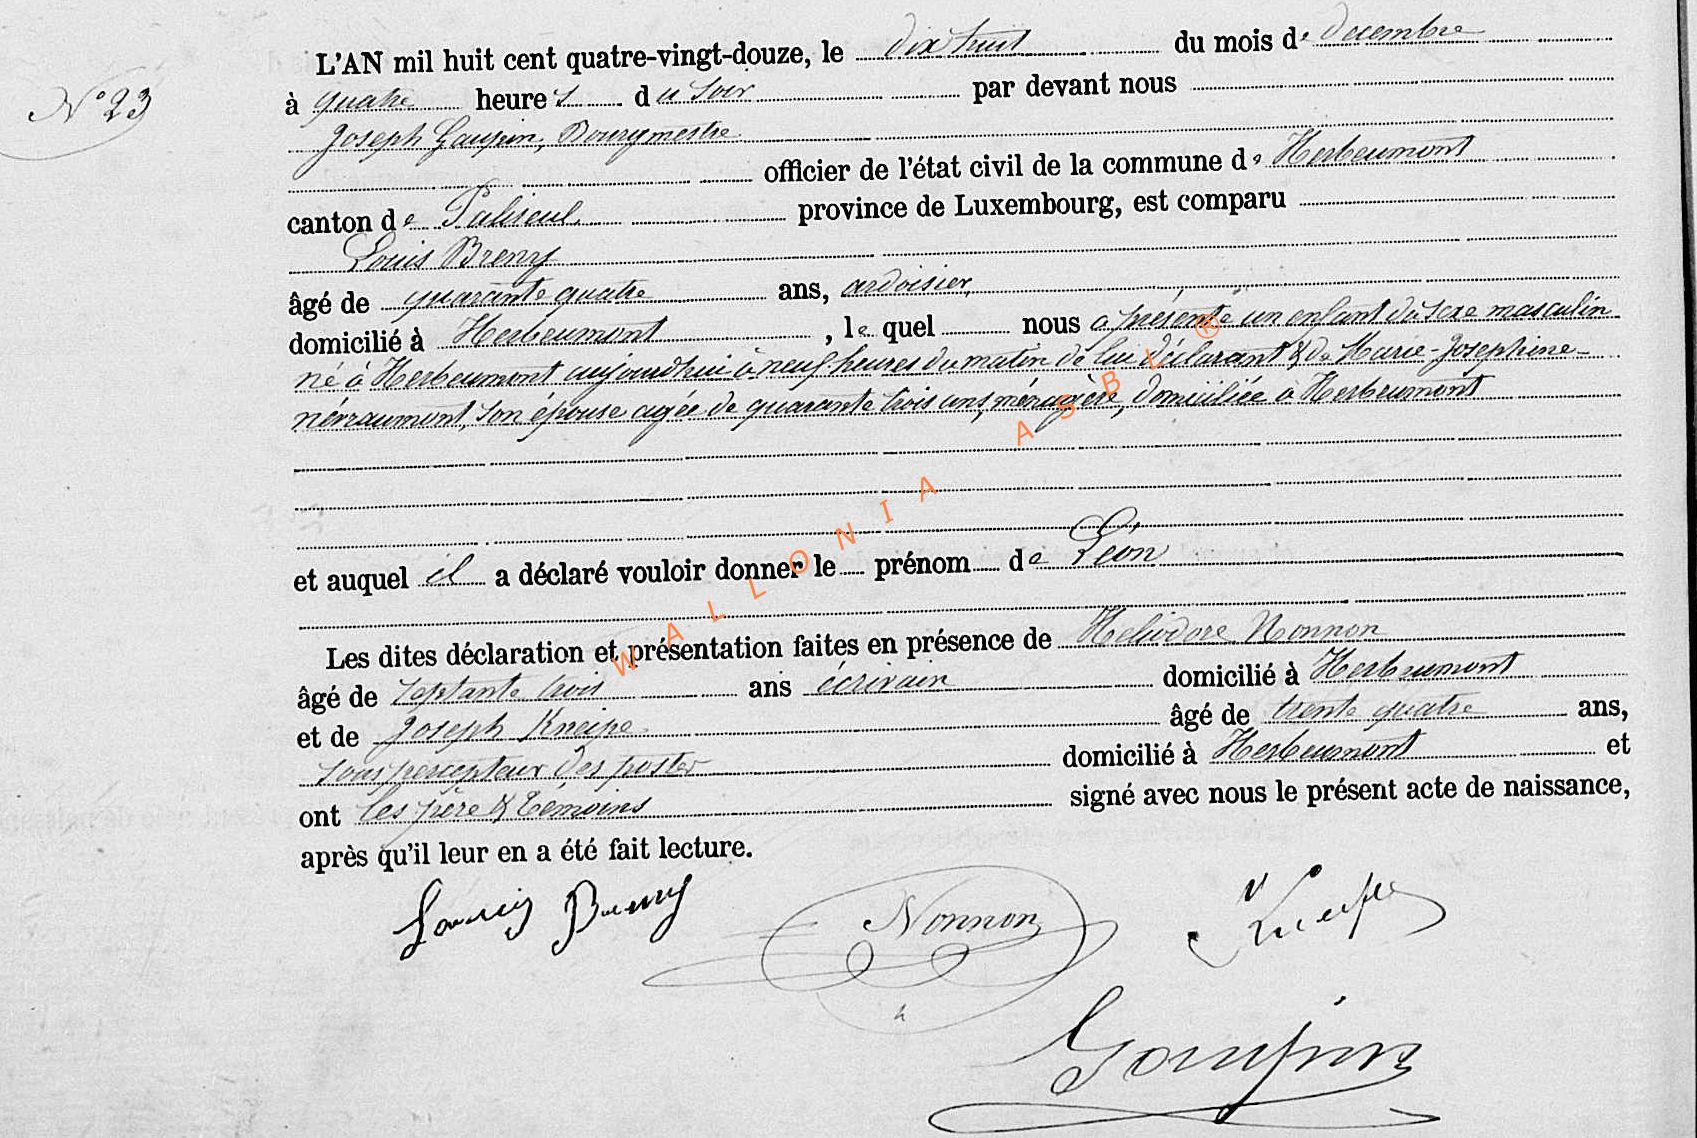 N° 23
L'AN mil huit cent quatre-vingt-douze, le dix huit du mois de décembre
à quatre heures du soir par devant nous
Joseph Goupin, Bourgmestre
officier de l'état civil de la commune de Herbeumont
canton de Paliseul province de Luxembourg, est comparu
Louis Breny
âgé de quarante quatre ans, ardoisier,
domicilié à Herbeumont, le quel nous a présenté un enfant du sexe masculin
né à Herbeumont aujourd'hui à neuf heures du matin de lui déclarant & de Marie-Josephine
névraumont, son épouse agée de quarante trois ans, ménagère, domiciliée à Herbeumont
et auquel il a déclaré vouloir donner le prénom de Léon
Les dites déclaration et présentation faites en présence de Heliodore Nonnon
âgé de septante trois ans écrivain domicilié à Herbeumont
et de Joseph Kneipe âgé de trente quatre ans,
sous percepteur des postes domicilié à Herbeumont et
ont les père & témoins signé avec nous le présent acte de naissance,
après qu'il leur en a été fait lecture.
Louis Breny Nonnon Kneipe
Goupin
WALLONIA ASBL ®